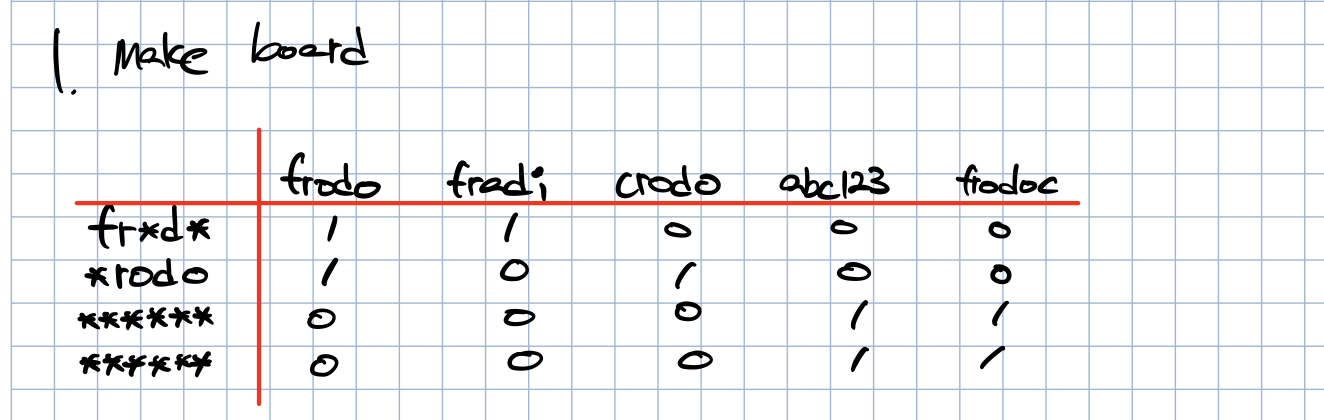 1. Make board
frodo fradi crodo abc123 frodoc
fr*d* 1 1 0 0 0
*rodo 1 0 1 0 0
****** 0 0 0 1 1
****** 0 0 0 1 1